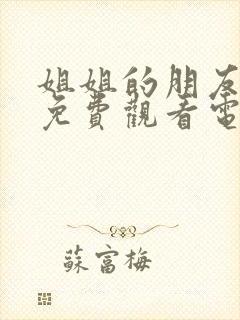 姐姐的朋友
免費觀看電
蘇富梅